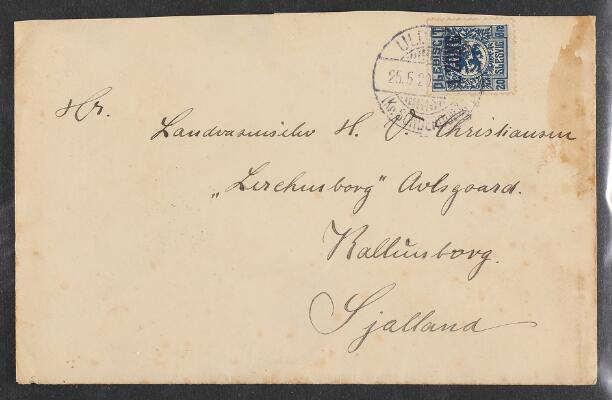 25.5.2
PLEBISCIT
SLESVIG
1. ZONE
Hr.
Landvæsenselev H. Christiansen
„Lerchenborg" Avlsgaard.
Kallunborg.
Sjælland